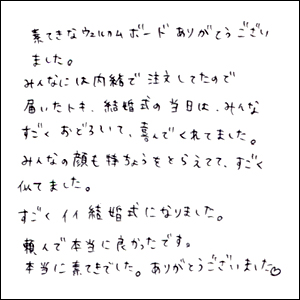 素てきなウェルカムボードありがとうござい
ました。
みんなには内緒で注文してたので
届いたトキ、結婚式の当日は、みんな
すごくおどろいて、喜んでくれてました。
みんなの顔も特ちょうをとらえてて、すごく
似てました。
すごくイイ結婚式になりました。
頼んで本当に良かったです。
本当に素てきでした。ありがとうございました♡